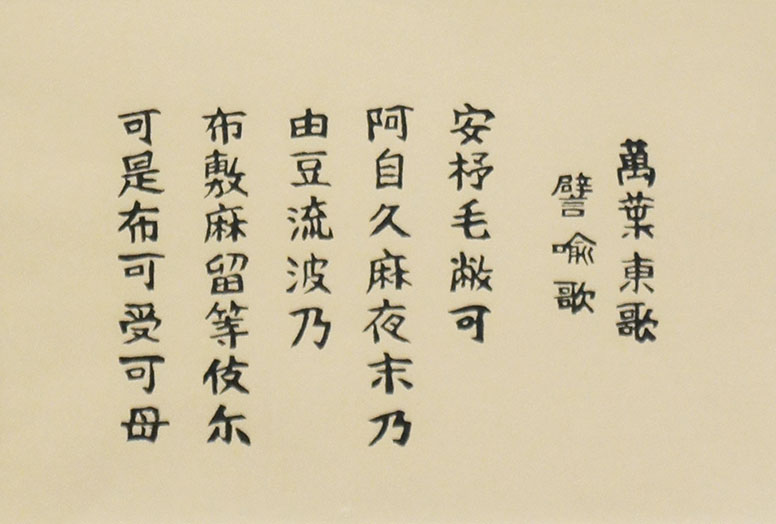 萬葉東歌
譬喩歌
安杼毛敝可
阿自久麻夜末乃
由豆流波乃
布敷麻留等伎尓
可是布可受可母